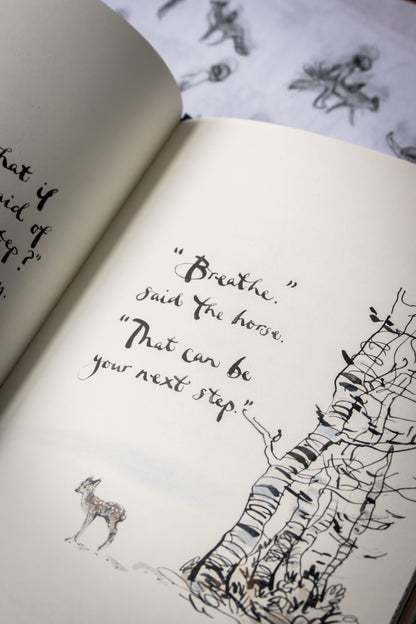 hat if
aid of
tep?"
"Breathe."
said the horse.
"That can be
your next step."